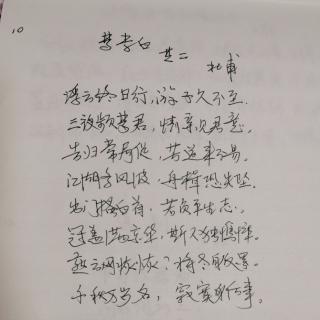 10
梦李白 其二
杜甫
浮云终日行，游子久不至。
三夜频梦君，情亲见君意。
告归常局促，苦道来不易。
江湖多风波，舟楫恐失坠。
出门搔白首，若负平生志。
冠盖满京华，斯人独憔悴。
孰云网恢恢？将老身反累。
千秋万岁名，寂寞身后事。